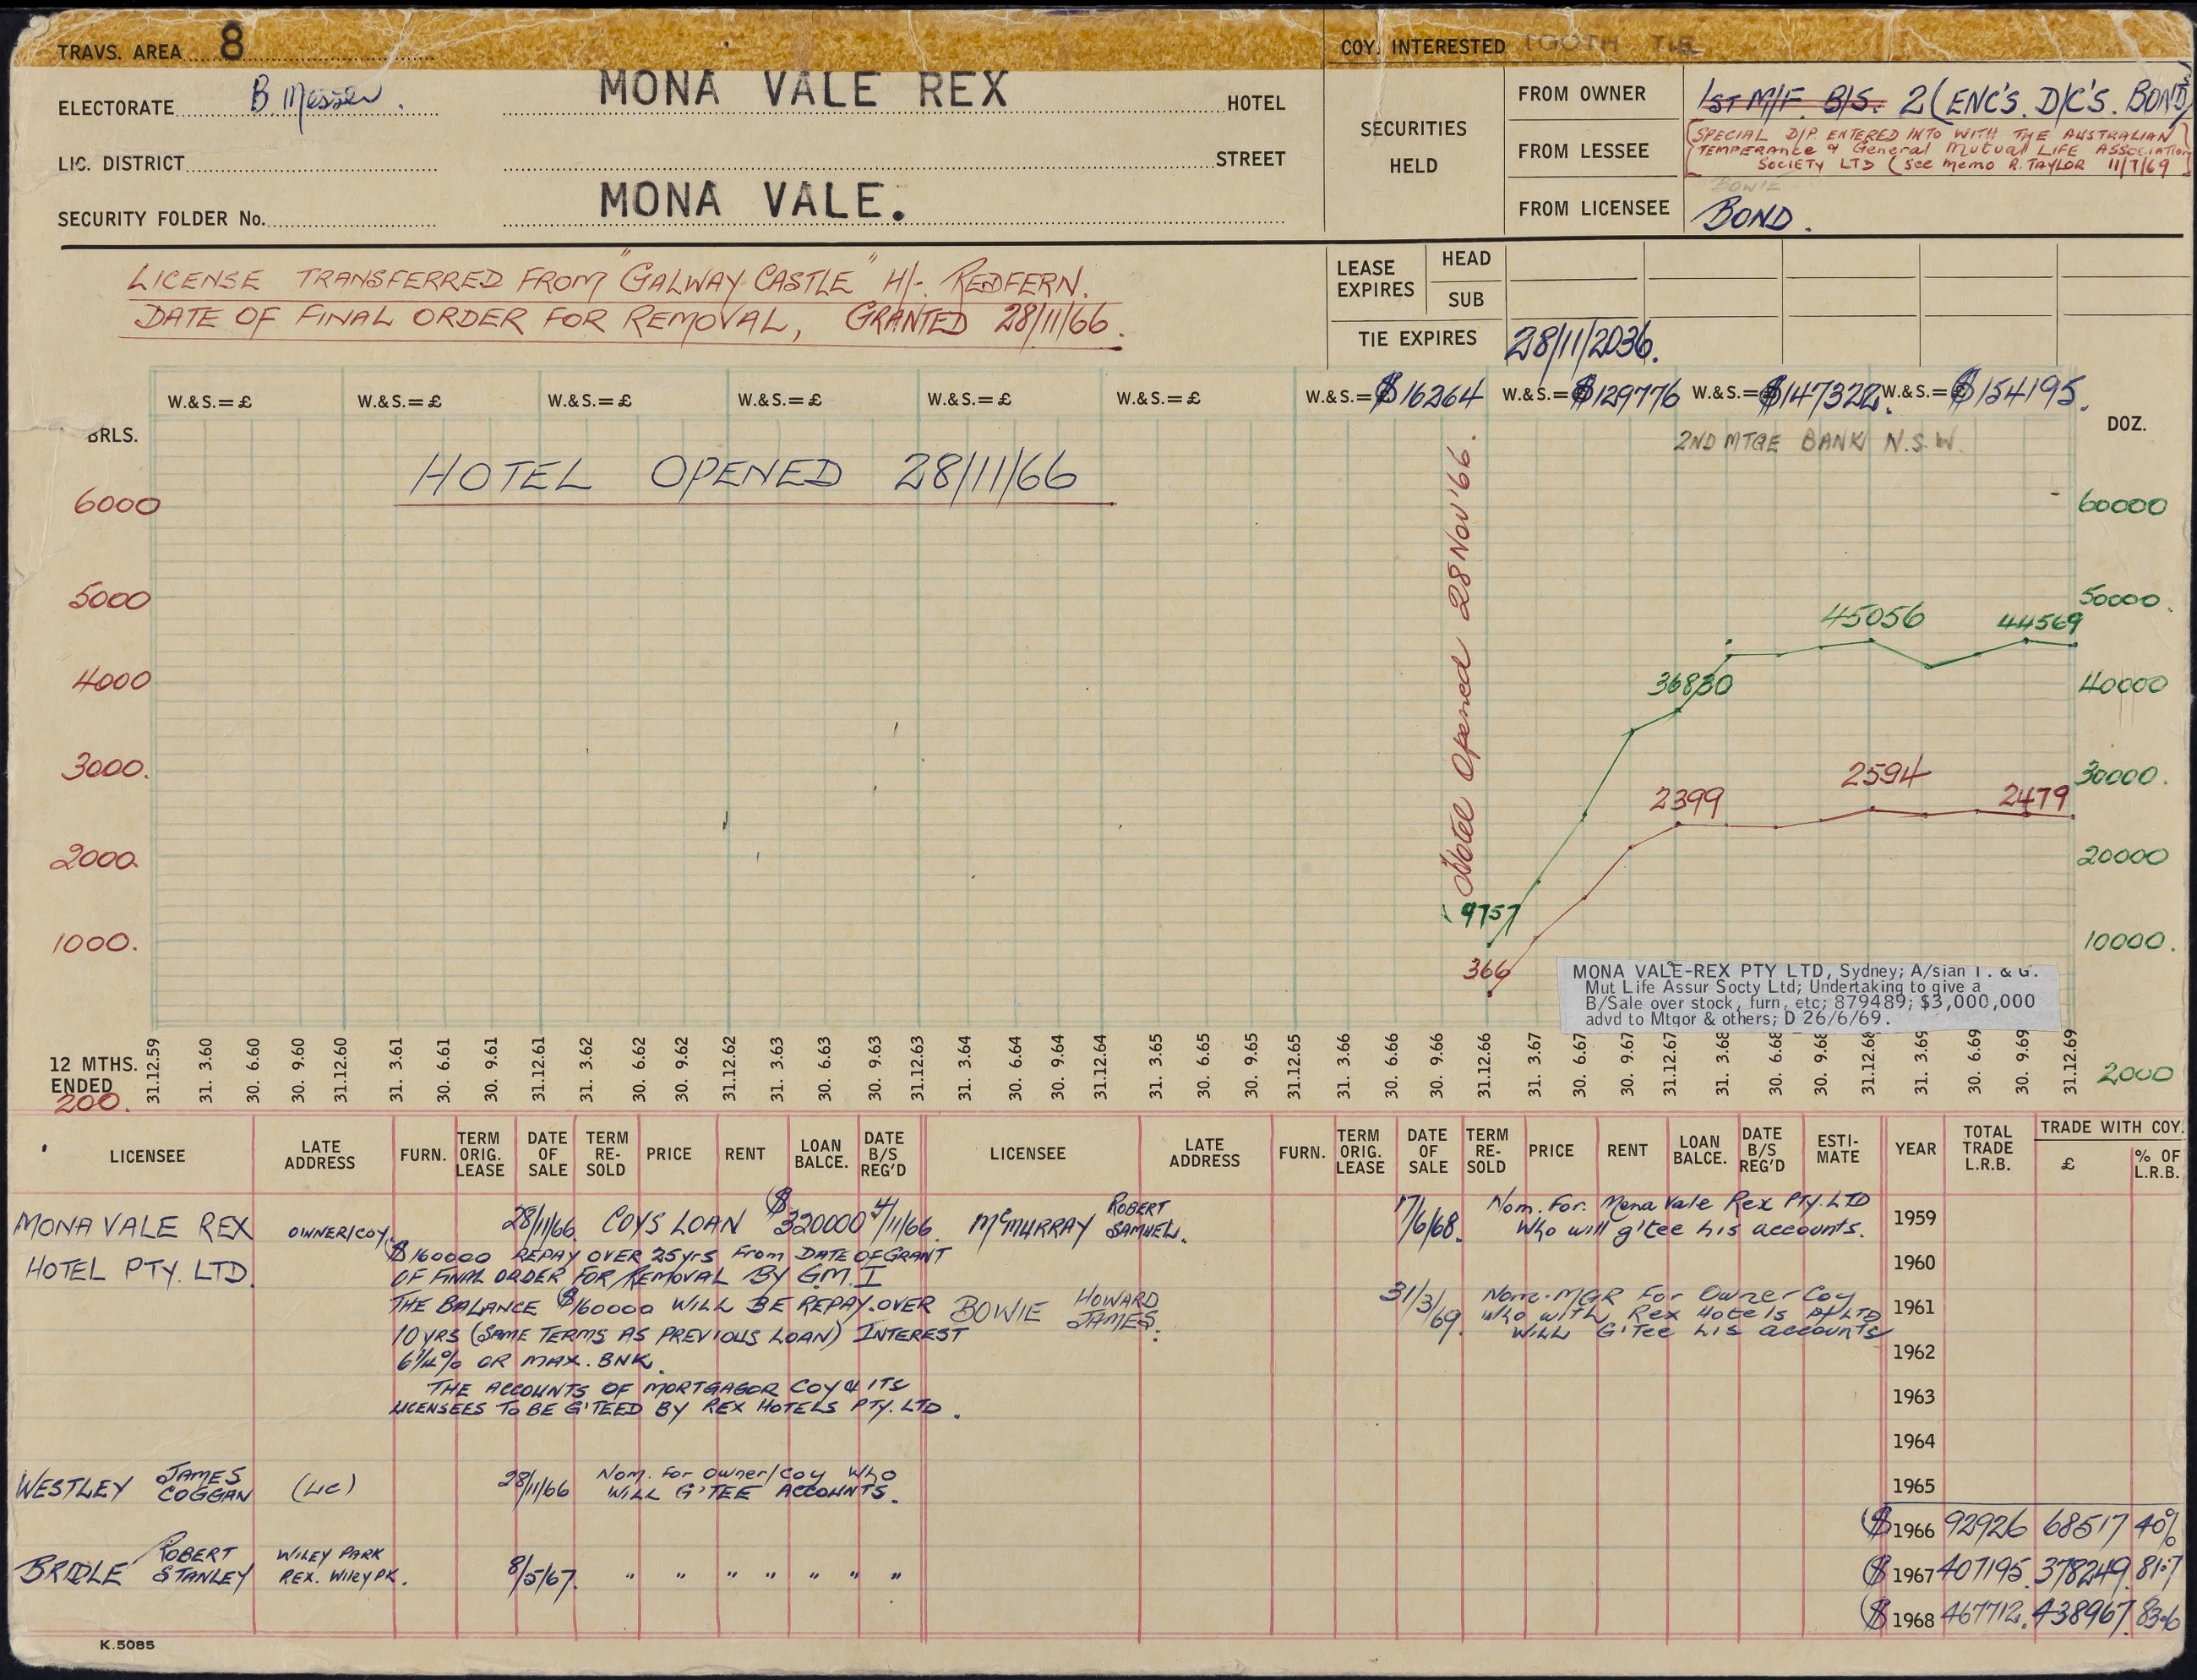 TRAVS. AREA 8
COY. INTERESTED TOOTH TIE
ELECTORATE B. Messer.
MONA VALE REX HOTEL
LIC. DISTRICT
STREET
SECURITY FOLDER No.
MONA VALE.
SECURITIES HELD
FROM OWNER 1ST M/F. B/S. 2 (ENC'S. D/C'S. BOND)
FROM LESSEE [SPECIAL D/P. ENTERED INTO WITH THE AUSTRALIAN
TEMPERANCE & General Mutual LIFE ASSOCIATION
SOCIETY LTD (See memo R. TAYLOR 11/7/69]
BOWIE
FROM LICENSEE BOND.
LICENSE TRANSFERRED FROM "GALWAY CASTLE" H/-. REDFERN.
DATE OF FINAL ORDER FOR REMOVAL, GRANTED 28/11/66.
LEASE EXPIRES HEAD
SUB
TIE EXPIRES 28/11/2036.
W.&S.=£ W.&S.=£ W.&S.=£ W.&S.=£ W.&S.=£ W.&S.=£ W.&S.=$16264 W.&S.=$129776 W.&S.=$147322. W.&S.=$154195.
BRLS.
DOZ.
2ND MTGE BANK N.S.W.
HOTEL OPENED 28/11/66
Hotel Opened 28 Nov '66.
6000
5000
4000
3000.
2000.
1000.
200.
60000
50000.
40000
30000.
20000
10000.
2000
45056
44569
36830
9757
2594
2399
2479
366
MONA VALE-REX PTY LTD, Sydney; A/sian T. & G.
Mut Life Assur Socty Ltd; Undertaking to give a
B/Sale over stock, furn, etc; 879489; $3,000,000
advd to Mtgor & others; D 26/6/69.
12 MTHS. ENDED
31.12.59 31. 3.60 30. 6.60 30. 9.60 31.12.60 31. 3.61 30. 6.61 30. 9.61 31.12.61 31. 3.62 30. 6.62 30. 9.62 31.12.62 31. 3.63 30. 6.63 30. 9.63 31.12.63 31. 3.64 30. 6.64 30. 9.64 31.12.64 31. 3.65 30. 6.65 30. 9.65 31.12.65 31. 3.66 30. 6.66 30. 9.66 31.12.66 31. 3.67 30. 6.67 30. 9.67 31.12.67 31. 3.68 30. 6.68 30. 9.68 31.12.68 31. 3.69 30. 6.69 30. 9.69 31.12.69
LICENSEE LATE ADDRESS FURN. TERM ORIG. LEASE DATE OF SALE TERM RE-SOLD PRICE RENT LOAN BALCE. DATE B/S REG'D LICENSEE LATE ADDRESS FURN. TERM ORIG. LEASE DATE OF SALE TERM RE-SOLD PRICE RENT LOAN BALCE. DATE B/S REG'D ESTI-MATE YEAR TOTAL TRADE L.R.B. TRADE WITH COY. £ % OF L.R.B.
MONA VALE REX HOTEL PTY. LTD. OWNER/COY. 28/11/66. COYS LOAN $320000 4/11/66.
$160000 REPAY OVER 25 yrs From DATE OF GRANT
OF FINAL ORDER FOR REMOVAL BY G.M.I
THE BALANCE $160000 WILL BE REPAY. OVER
10 YRS (SAME TERMS AS PREVIOUS LOAN) INTEREST
6 1/4% OR MAX. BNK.
THE ACCOUNTS OF MORTGAGOR COY & ITS
LICENSEES TO BE G'TEED BY REX HOTELS PTY. LTD.
WESTLEY JAMES COGGAN (LIC) 28/11/66 Nom. For Owner/Coy Who
WILL G'TEE ACCOUNTS.
BRIDLE ROBERT STANLEY WILEY PARK REX. WILEY PK. 8/5/67. " " " " " " "
McMURRAY ROBERT SAMUEL. 17/6/68. Nom. For. Mona Vale Rex PTY. LTD
Who will g'tee his accounts.
BOWIE HOWARD JAMES. 31/3/69. Nom. MGR For Owner Coy
Who with Rex Hotels P/LTD
WILL G'Tee his accounts
1959
1960
1961
1962
1963
1964
1965
$ 1966 92926 68517 40%
$ 1967 407195. 378249. 81.7
$ 1968 467712. 438967. 83.6
K.5085